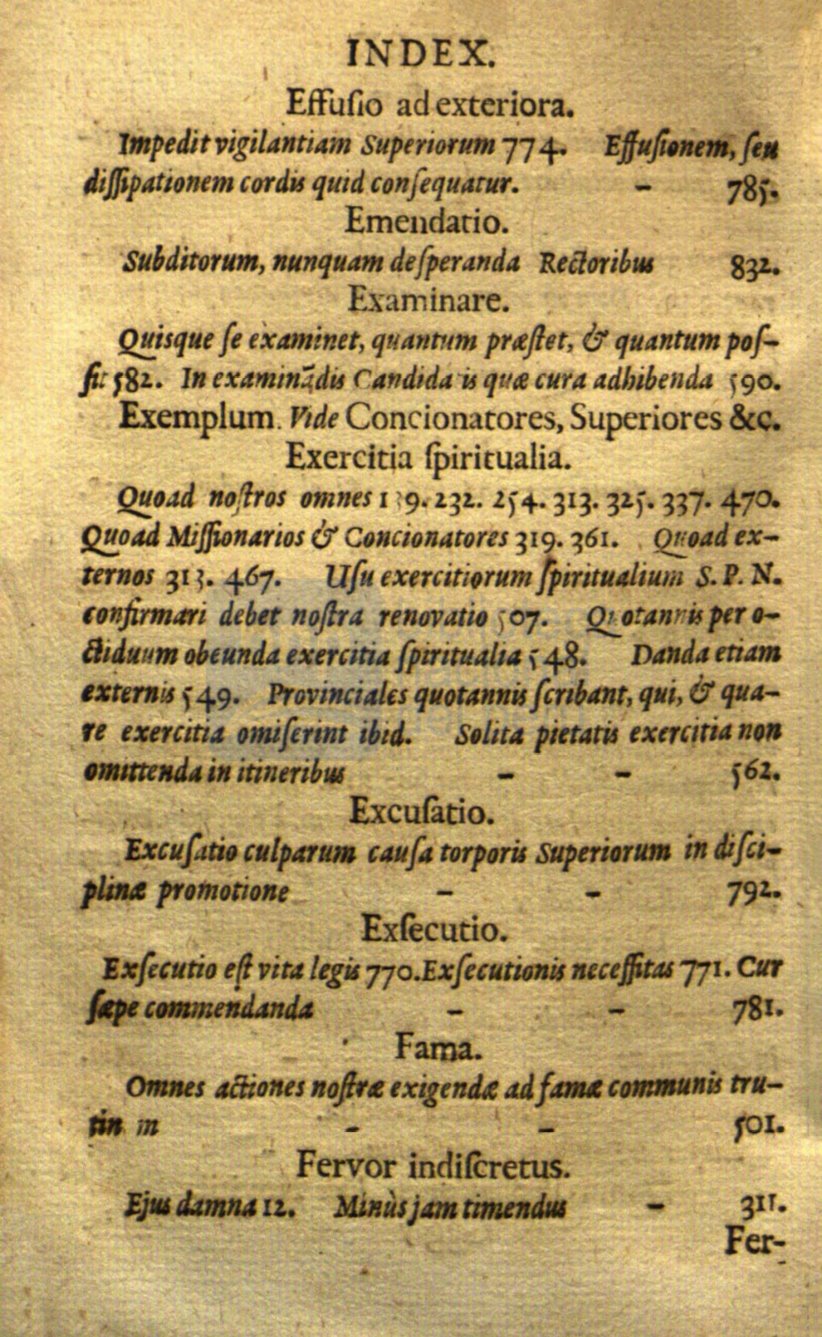 INDEX.
Effuſio ad exteriora.
Impedit vigilantiam Superiorum 774. Effuſionem, ſeu
diſſipationem cordis quid conſequatur. - 785.
Emendatio.
Subditorum, nunquam deſperanda Rectoribus 832.
Examinare.
Quisque ſe examinet, quantum præſtet, & quantum poſ-
ſit 582. In examinãdis Candidatis quæ cura adhibenda 590.
Exemplum. Vide Concionatores, Superiores &c.
Exercitia ſpiritualia.
Quoad noſtros omnes 139. 232. 254. 313. 325. 337. 470.
Quoad Miſſionarios & Concionatores 319. 361. Quoad ex-
ternos 313. 467. Uſu exercitiorum ſpiritualium S. P. N.
confirmari debet noſtra renovatio 507. Quotannis per o-
ctiduum obeunda exercitia ſpiritualia 548. Danda etiam
externis 549. Provinciales quotannis ſcribant, qui, & qua-
re exercitia omiſerint ibid. Solita pietatis exercitia non
omittenda in itineribus - - 562.
Excuſatio.
Excuſatio culparum cauſa torporis Superiorum in diſci-
plinæ promotione - - 792.
Exſecutio.
Exſecutio eſt vita legis 770. Exſecutionis neceſſitas 771. Cur
ſæpe commendanda - - 781.
Fama.
Omnes actiones noſtræ exigendæ ad famæ communis tru-
- - 501.
Fervor indiſcretus.
Ejus damna 12. Minùs jam timendus - 311.
Fer-